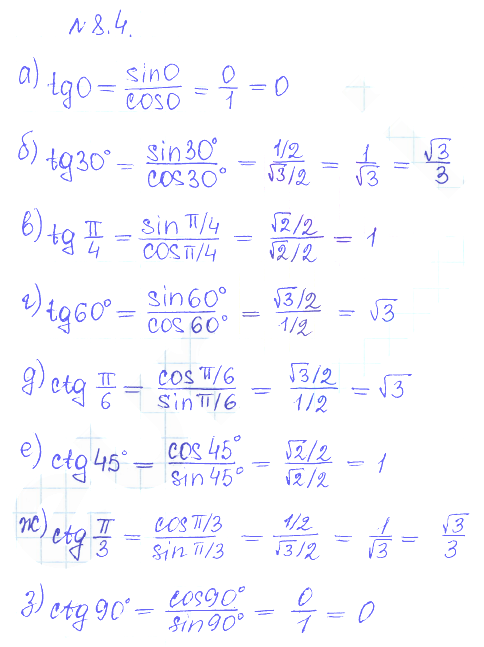 №8.4.
а) tg0 = sin0/cos0 = 0/1 = 0
б) tg30° = sin30°/cos30° = (1/2)/(√3/2) = 1/√3 = √3/3
в) tg π/4 = (sin π/4)/(cos π/4) = (√2/2)/(√2/2) = 1
г) tg60° = sin60°/cos60° = (√3/2)/(1/2) = √3
д) ctg π/6 = (cos π/6)/(sin π/6) = (√3/2)/(1/2) = √3
е) ctg45° = cos45°/sin45° = (√2/2)/(√2/2) = 1
ж) ctg π/3 = (cos π/3)/(sin π/3) = (1/2)/(√3/2) = 1/√3 = √3/3
з) ctg90° = cos90°/sin90° = 0/1 = 0